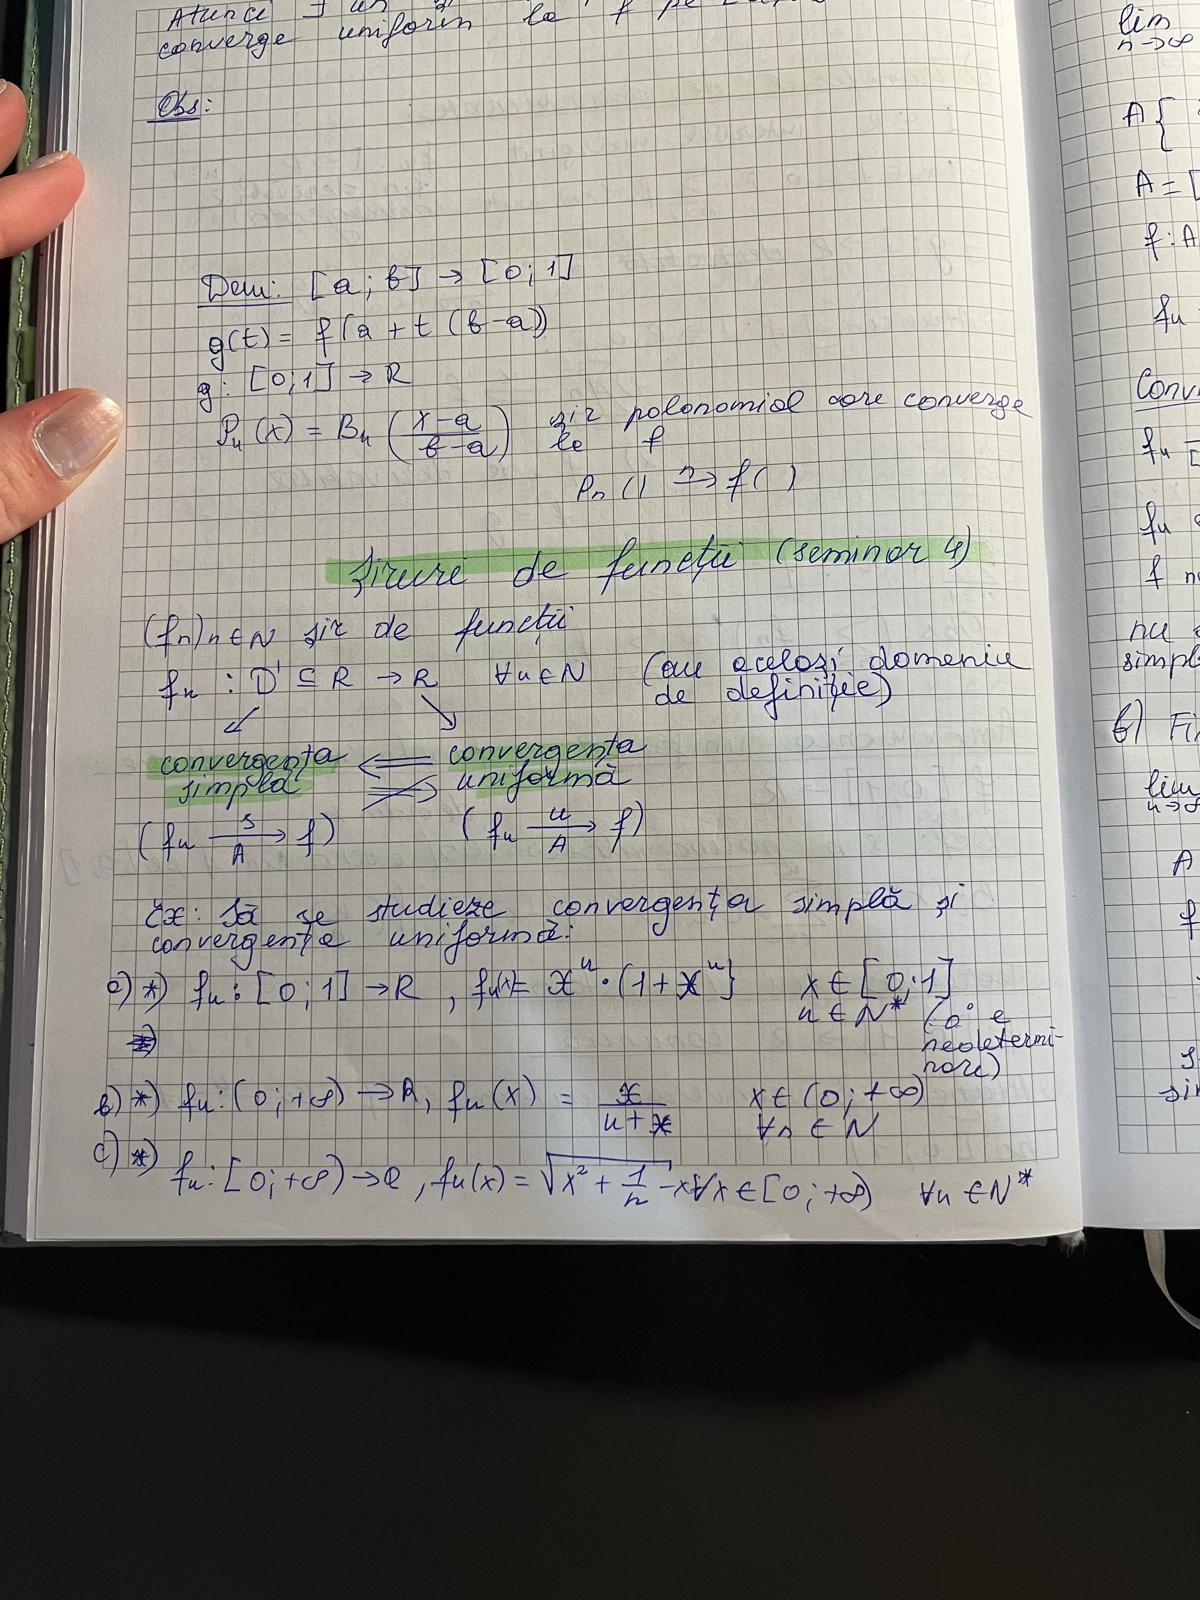 converge uniform la f pe
Obs:
Dem: [a; b] → [0; 1]
g(t) = f(a + t (b-a))
g: [0;1] → R
Pn (x) = Bn (x-a / b-a) șir polonomial care converge
la f
Pn () →→ f( )
Șiruri de funcții (seminar 4)
(fn)n∈N șir de funcții
fn : D ⊆ R → R ∀n∈N (au același domeniu
de definiție)
convergența ⇐ convergența
simplă ⇏ uniformă
(fn —s/A→ f) (fn —u/A→ f)
Ex: Să se studieze convergența simplă și
convergența uniformă:
a) *) fn : [0; 1] → R , fn(x)= x^n · (1 + x^n) x ∈ [0;1]
n ∈ N* (0° e
nedetermi-
nare)
b) *) fn : (0; +∞) → R, fn (x) = x / n + x x ∈ (0; +∞)
∀n ∈ N
c) *) fn : [0; +∞) → R , fn(x) = √(x² + 1/n) - x ∀x ∈ [0; +∞) ∀n ∈ N*
lim
n→∞
A {
A = [
f : A
fn
Conv
fn
[
fn
f
nu
simpl
b) Fi
lim
n→∞
A
f